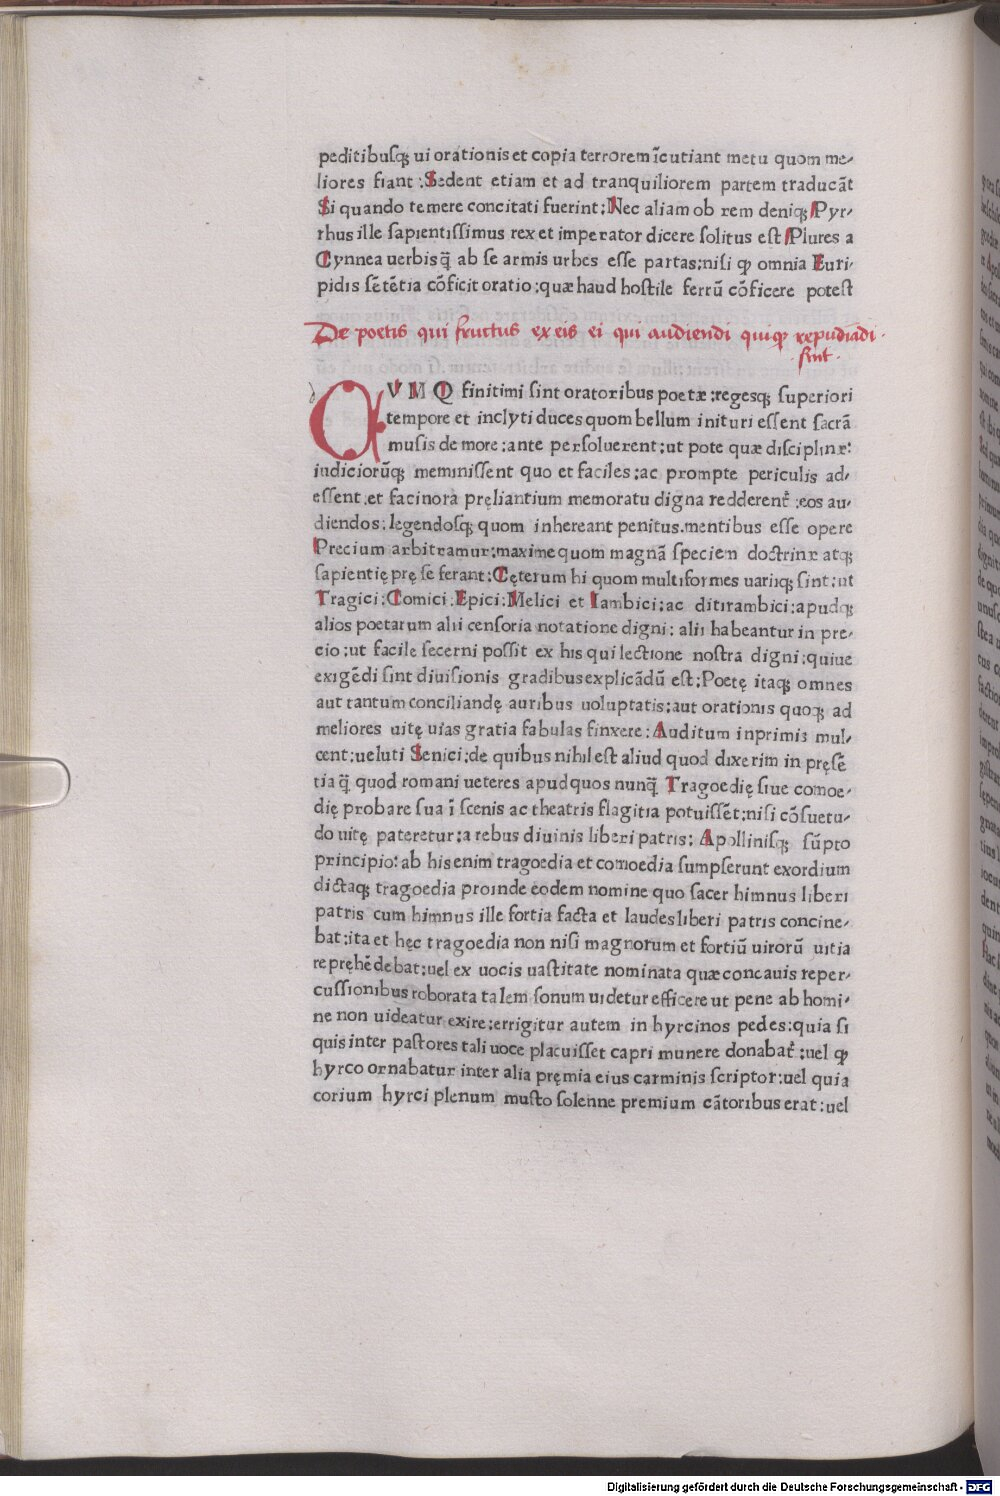 peditibusqꝫ ui orationis et copia terrorem īcutiant metu quom me-
liores fiant : Sedent etiam et ad tranquiliorem partem traducāt
Si quando temere concitati fuerint: Nec aliam ob rem deniqꝫ Pyr-
rhus ille sapientissimus rex et imperator dicere solitus est Plures a
Cynnea uerbis q̄ ab se armis urbes esse partas: nisi ꝙ omnia Euri-
pidis sētētia cōficit oratio: quæ haud hostile ferrū cōficere potest
De poetis qui fructus ex eis ei qui audiendi quiqꝫ repudiādi.
.sint.
QVMQ finitimi sint oratoribus poetæ: regesqꝫ superiori
tempore et inclyti duces quom bellum inituri essent sacrā
musis de more: ante persoluerent: ut pote quæ disciplinæ:
iudiciorūqꝫ meminissent quo et faciles: ac prompte periculis ad-
essent .et facinora pręliantium memoratu digna redderent̄ :eos au-
diendos: legendosqꝫ quom inhereant penitus.mentibus esse opere
Precium arbitramur: maxime quom magnā speciem doctrinæ atqꝫ
sapientię prę se ferant: Cęterum hi quom multiformes uariiqꝫ sint: ut
Tragici: Comici: Epici: Melici et Iambici: ac ditirambici: apudqꝫ
alios poetarum alii censoria notatione digni: alii habeantur in pre-
cio: ut facile secerni possit ex his qui lectione nostra digni: quiue
exigēdi sint diuisionis gradibus explicādū est: Poetę itaqꝫ omnes
aut tantum conciliandę auribus uoluptatis: aut orationis quoqꝫ ad
meliores uitę uias gratia fabulas finxere: Auditum inprimis mul-
cent: ueluti Scenici: de quibus nihil est aliud quod dixerim in pręsē
tia q̄ quod romani ueteres apud quos nunq̄ Tragoedię siue comoe-
dię probare sua ī scenis ac theatris flagitia potuissēt: nisi cōsuetu-
do uitę pateretur: a rebus diuinis liberi patris: Apollinisqꝫ sūpto
principio: ab his enim tragoedia et comoedia sumpserunt exordium
dictaqꝫ tragoedia proinde eodem nomine quo sacer himnus liberi
patris cum himnus ille fortia facta et laudes liberi patris concine-
bat: ita et hęc tragoedia non nisi magnorum et fortiū uirorū uitia
repręhēdebat: uel ex uocis uastitate nominata quæ concauis reper-
cussionibus roborata talem sonum uidetur efficere ut pene ab homi-
ne non uideatur exire: errigitur autem in hyrcinos pedes: quia si
quis inter pastores tali uoce placuisset capri munere donabat̄ :uel ꝙ
hyrco ornabatur inter alia pręmia eius carminis scriptor: uel quia
corium hyrci plenum musto solenne premium cātoribus erat: uel
Digitalisierung gefördert durch die Deutsche Forschungsgemeinschaft - DFG